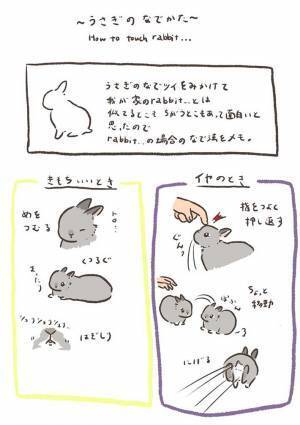 ～うさぎの なでかた～
How to touch rabbit...
うさぎのなでツイをみかけて
我が家のrabbit...とは
似てるところ ちがうとこもあって面白いと
思ったので
rabbit...の場合の なで法をメモ。
きもちいいとき
めを
つむる
くつろぐ
まったり
ショリショリショリ...
はぎしり
イヤのとき
指をつよく
押し返す
ぐんっ
ちょっと
移動
にげる